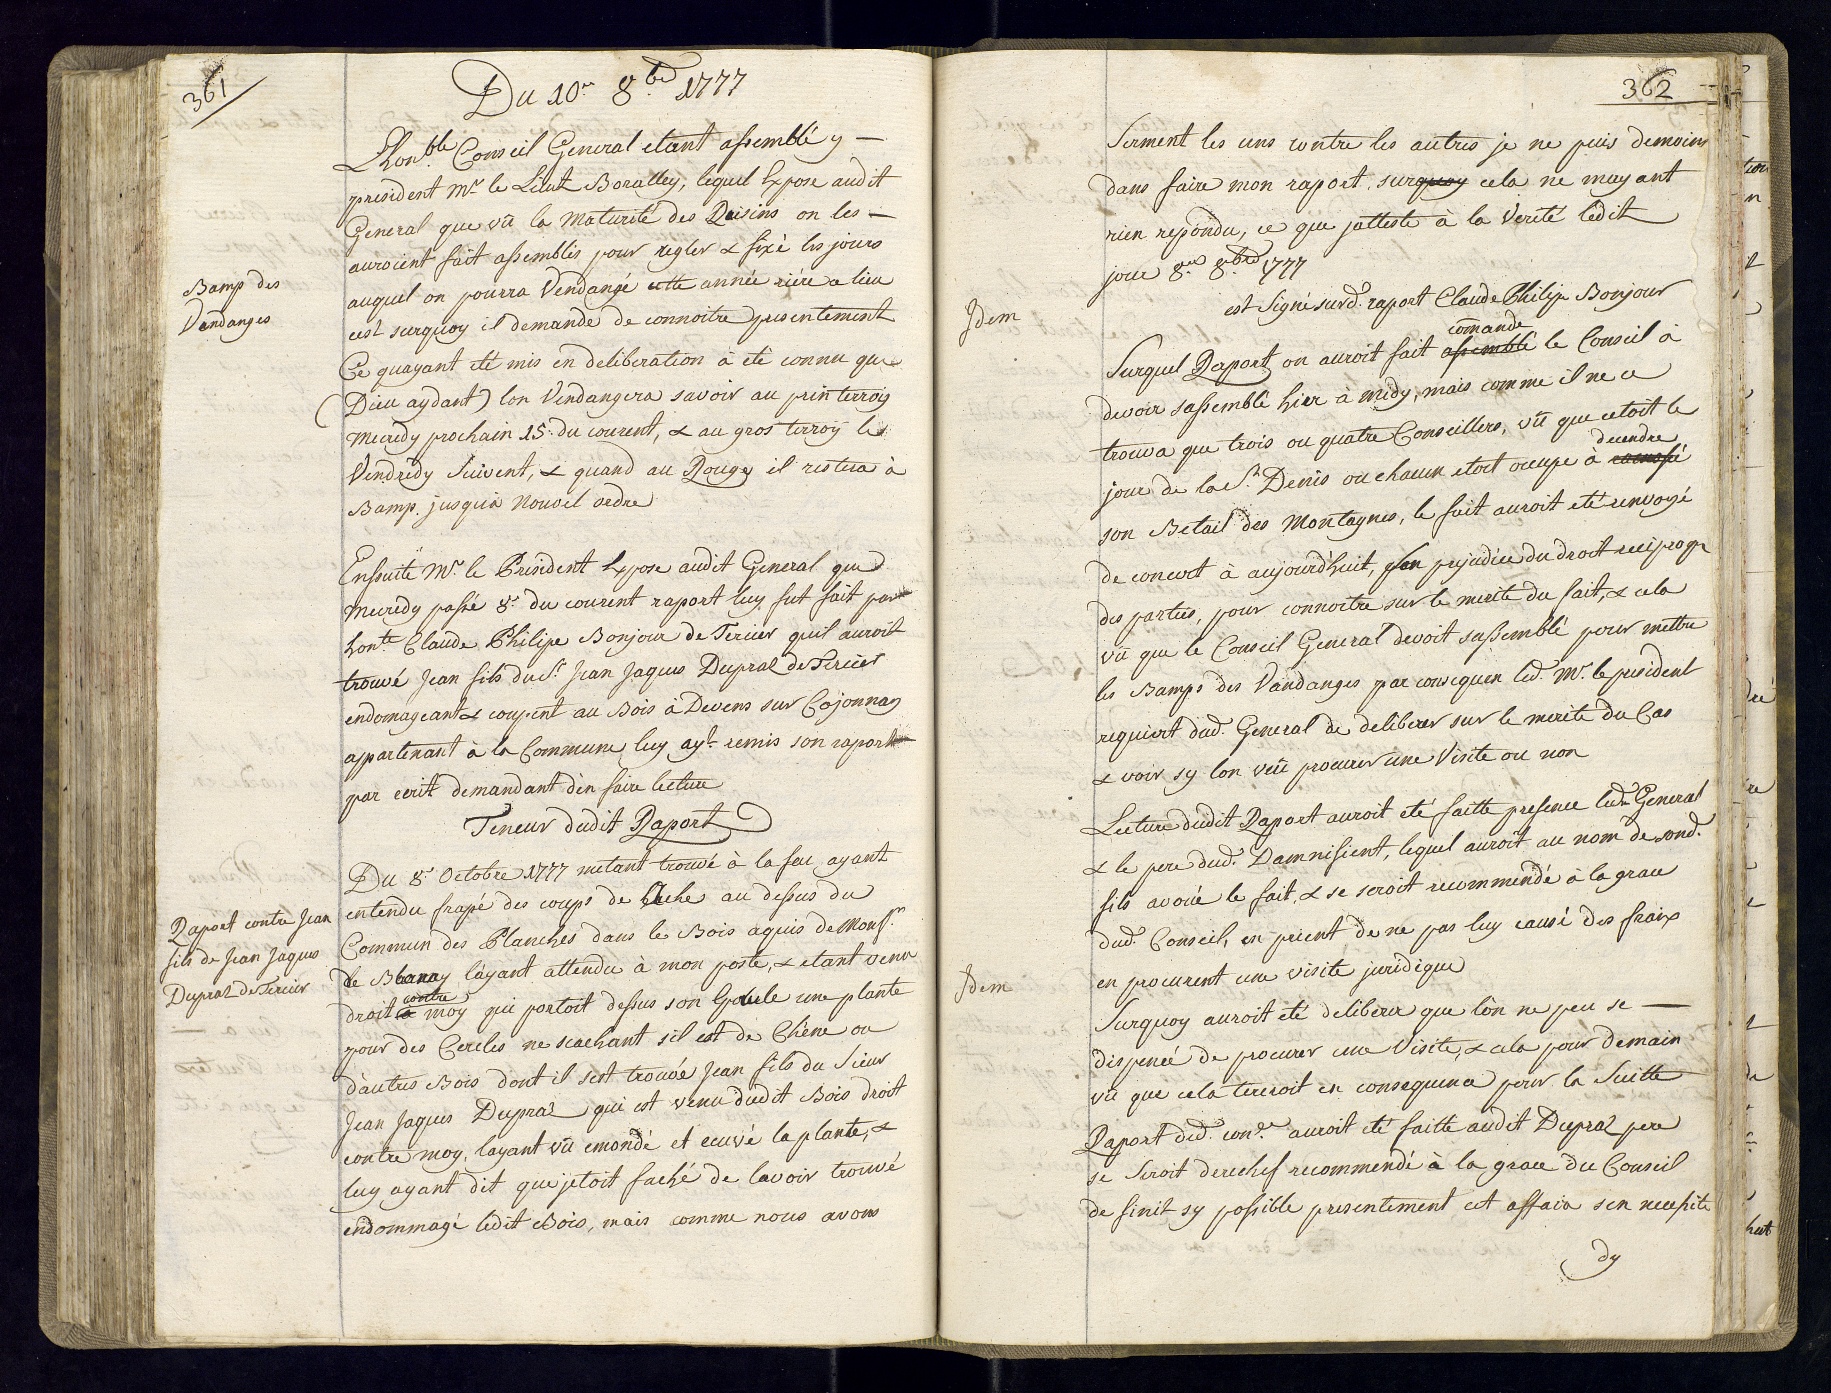 361
Du 10.e 8.bre 1777
Lhon.ble Conseil General etant assemblé y —
president Mr le Lieut Boralley, lequel Expose audit
General que vû la maturité des Raisins on les —
auroient fait assemblés pour regler & fixé les jours
auquel on pourra Vendangé cette année riére a lieu
cest surquoy il demande de connoitre presentement
Bamp des
Vendanges
Ce quayant eté mis en deliberation à eté connu que
(Dieu aydant) lon Vendangera savoir au prin terroiy
mecredy prochain 15. du courent, & au gros terroiy le
Vendredy Suivent, & quand au Rouge il restera à
Bamp. jusquà Nouvel ordre
Ensuitte Mr. le President Expose audit General que
mecredy passé 8e. du courent raport luy fut fait par
hon.te Claude Philipe Bonjour de Tercier quil auroit
trouvé Jean fils du Sr. Jean Jaques Dupraz de Tercier
endomageant & coupent au Bois à Devens sur Cojonnay
appartenant à la Commune luy ay.t remis son raport
par ecrit demandant dën faire lecture
Teneur dudit Raport
Du 8e. Octobre 1777 metant trouvé à la feu, ayant
entendu frapé des coups de hache au dessus du
Commun des Planches dans le Bois aquis de Monsr.
Raport contre Jean
fils de Jean Jaques
Dupraz de Tercier
de Blonay layant attendu à mon poste, & etant venu
contre
droit à moy qui portoit dessus son Epaule une plante
pour des Cercles ne scachant sil est de Chêne ou
dàutres Bois dont il sest trouvée Jean fils du Sieur
Jean Jaques Dupraz qui est venu dudit Bois droit
contre moy, layant vû emondé et ecuvé la plante, &
luy ayant dit que jetoit faché de lavoir trouvé
endommagé ledit Bois, mais comme nous avons
362
Serment les uns contre les autres je ne puis demoins
dans faire mon raport. surquoy cela ne mayant
rien repondu, ce que jatteste à la Verité ledit
jour 8.e 8.bre 1777
est Signé surd. raport Claude Philipe Bonjour
Idem
comande
Surquel Raport on auroit fait assemblé le Conseil à
devoir sassemblé hier à midy, mais comme il ne ce
trouva que trois ou quatre Conseillers, vû que cetoit le
decendre
jour de la St. Denis ou chacun etoit occupé à
son Betail des Montagnes, le fait auroit eté renvoyé
de concert à aujourdhuit, sen prejudice du droit reciproque
des parties, pour connoitre sur le merite du fait, & cela
vû que le Conseil General devoit sassemblé pour mettre
les Bamps des Vandanges par consequen led. Mr. le president
requiert dud. General de deliberer sur le merite du Cas
& voir sy lon veu procurer une Visite ou non
Lecture dudit Raport auroit eté faitte presence led. General
& le pere dud. Damnifient, lequel auroit au nom de sond.
fils avoué le fait, & se seroit recommendé à la grace
dud. Conseil, en prient de ne pas luy causé des fraix
en procurent une visite juridique
Idem
Surquoy auroit eté deliberer que lòn ne peu se —
dispencé de procurer une Visite, & cela pour demain
vû que cela tireroit en consequence pour la Suitte
Raport dud. con.e auroit eté faitte audit Dupraz pere
se seroit derechef recommendé à la grace du Conseil
de finir sy possible presentement cet affaire sen necessite
dy